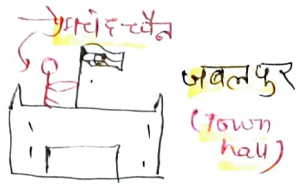 प्रेमचंद जैन
जबलपुर
(Town
hall)